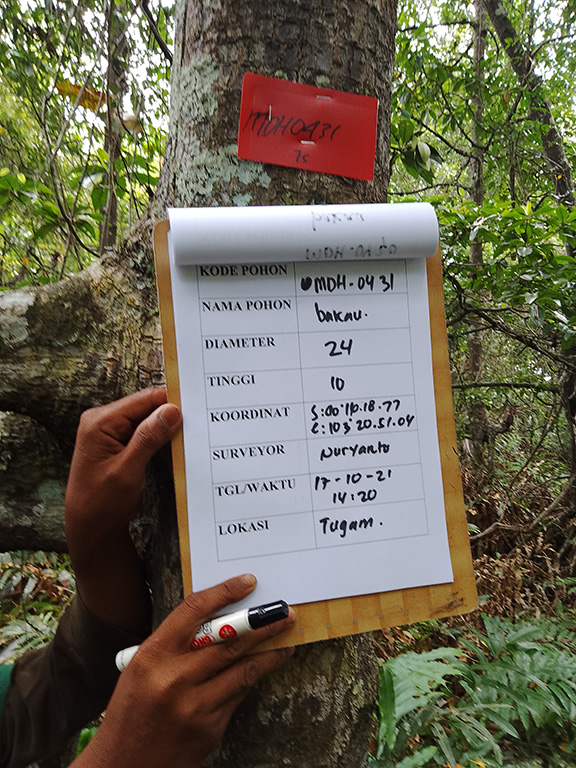 MDH0431
KODE POHON MDH-0431
NAMA POHON bakau.
DIAMETER 24
TINGGI 10
KOORDINAT S:00°10.18.77
E:103°20.51.04
SURVEYOR nuryanto
TGL/WAKTU 17-10-21
14:20
LOKASI Tugam.